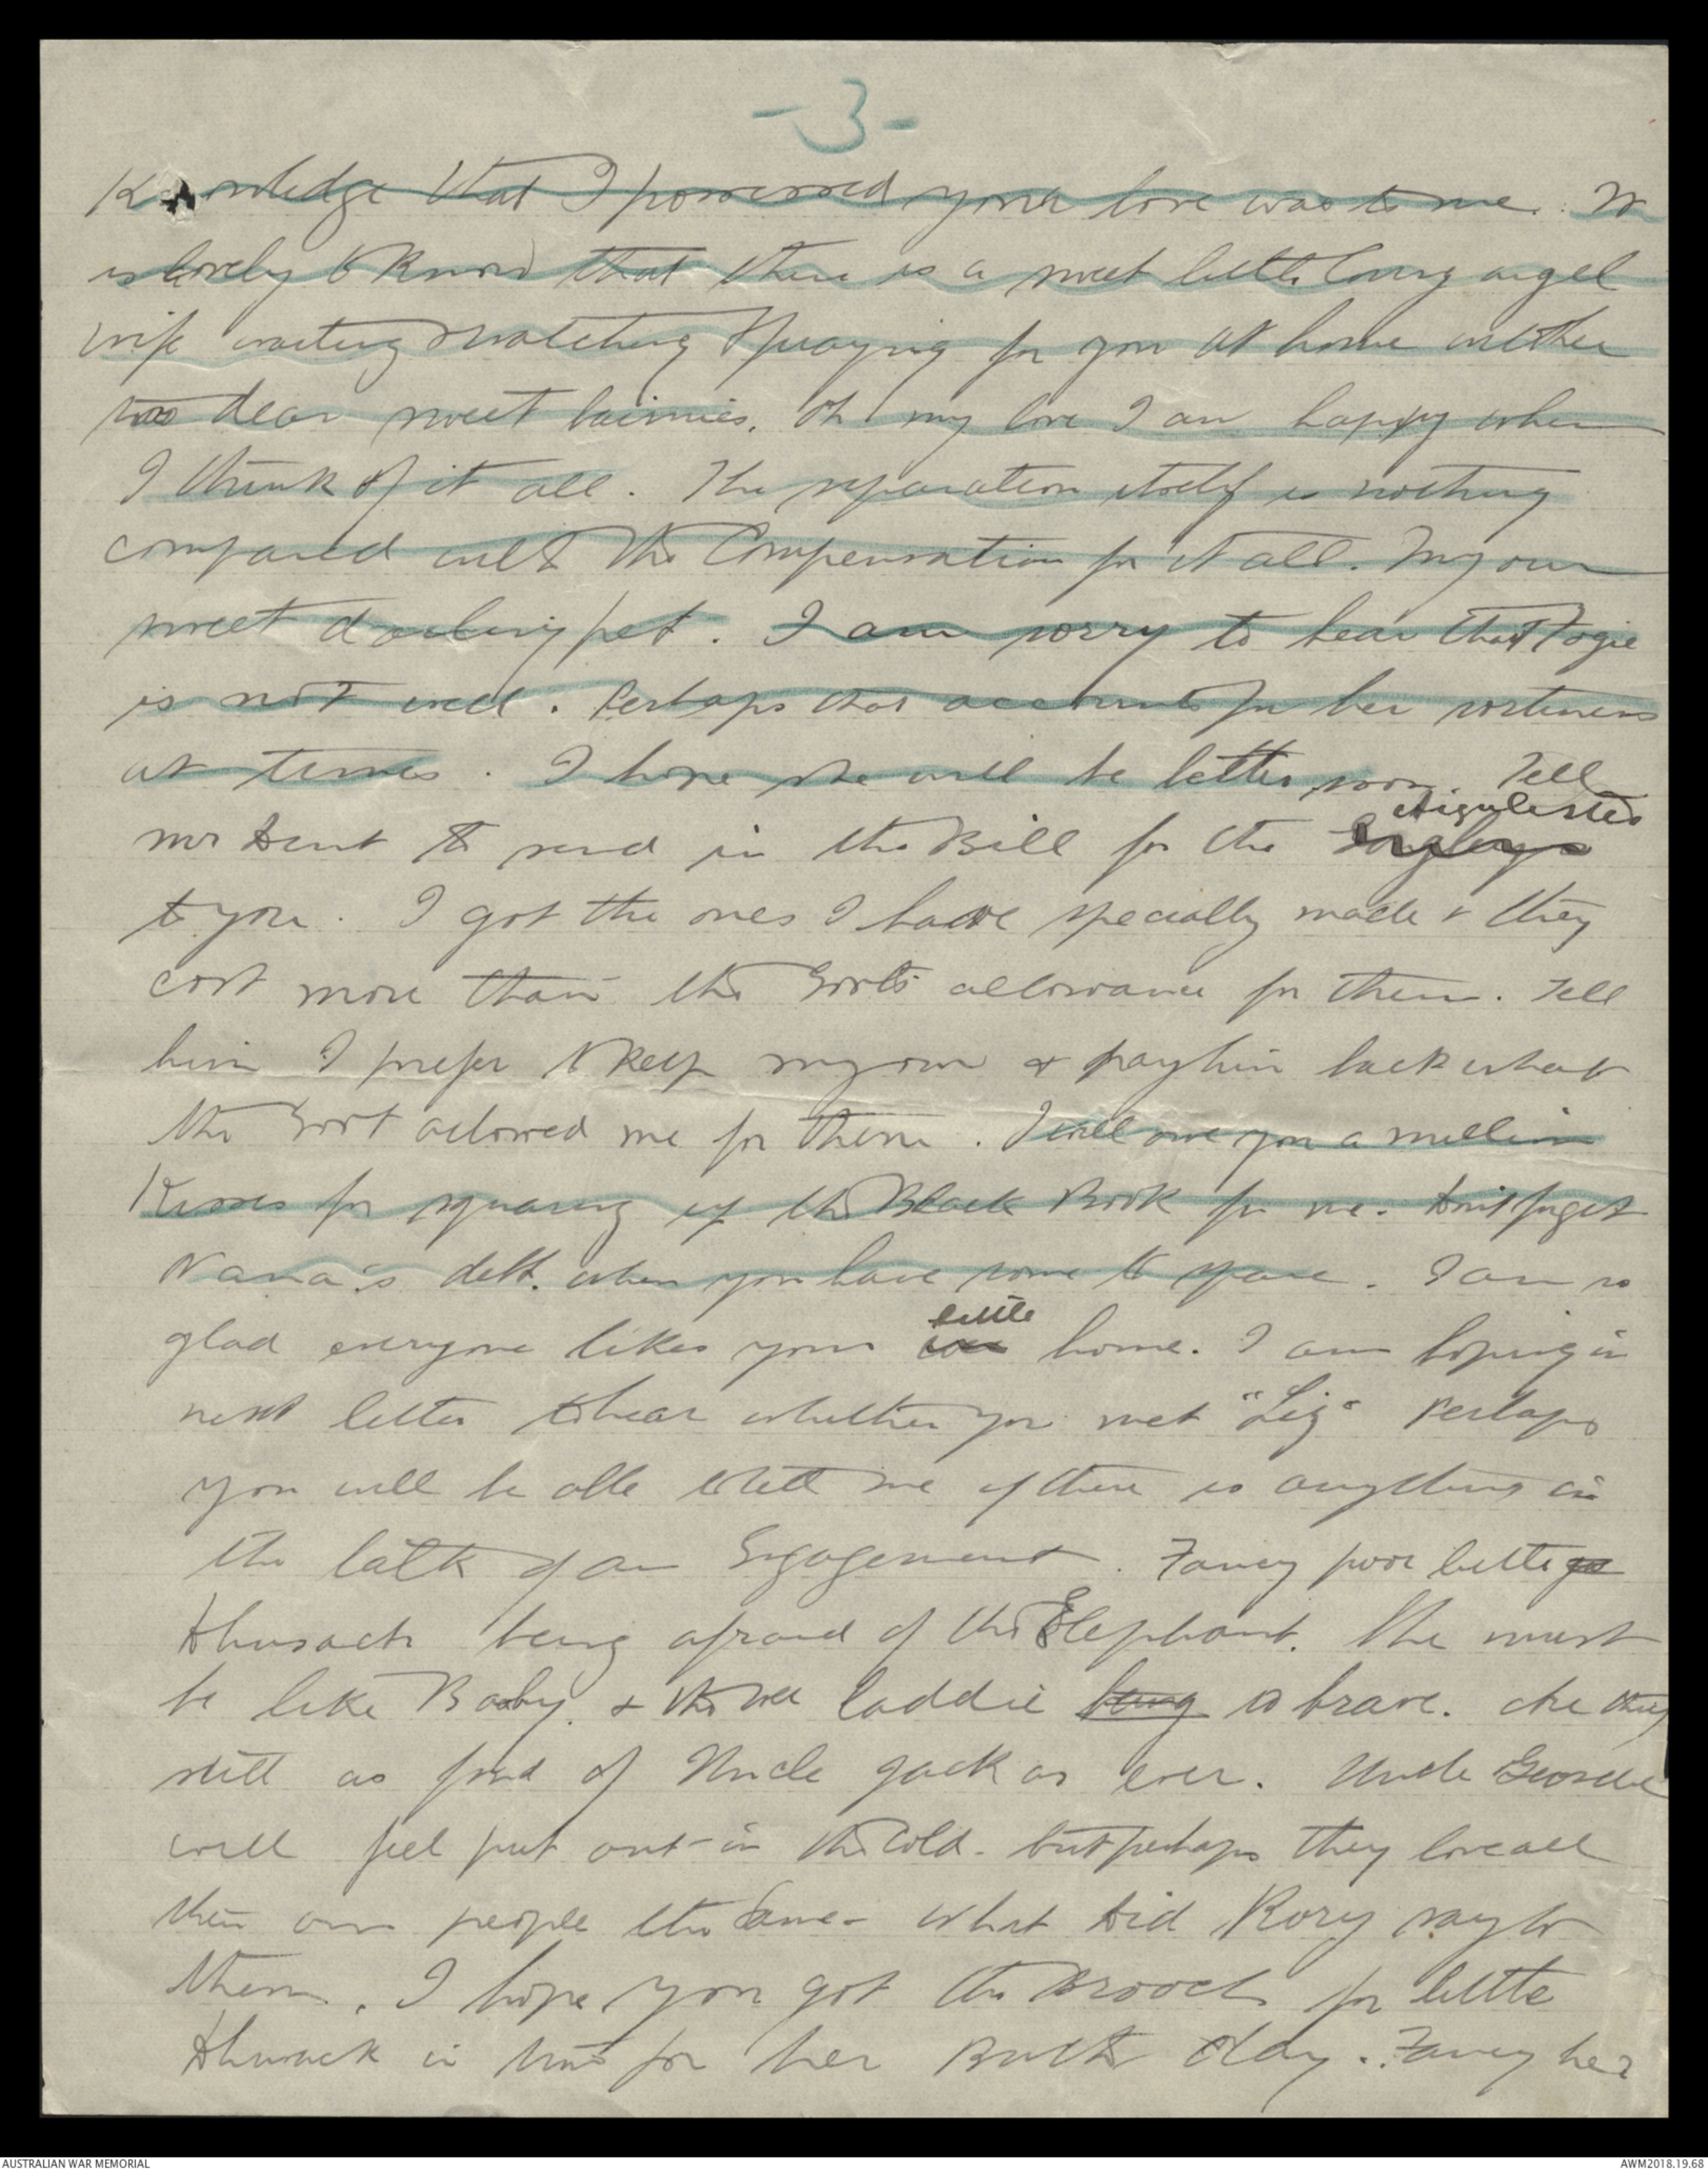 -3-
Knowledge that I possessed your love was to me. It
is lovely to know that there is a sweet little loving angel
wife waiting & watching & praying for you at home with her
two dear sweet bairnies. Oh my love I am happy when
I think of it all. The separation itself is nothing
compared with the Compensation for it all. My own
sweet darling pet. I am sorry to hear that Fogie
is not well. Perhaps that accounts for her
at times. I hope she will be better soon. Tell
Mr Dent to send in the Bill for the
to you. I got the ones I have specially made & they
cost more than the Govt's allowance for them. Tell
him I prefer to keep my own & pay him back what
the Govt allowed me for them. I will owe you a million
Kisses for squaring up the Black Book for me. Don't forget
Nana's debt. when you have some to spare. I am so
glad everyone likes your little home. I am hoping in
next letter to hear whether you met "Liz" Perhaps
you will be able to tell me if there is anything in
the talk of an Engagement. Fancy poor little
being afraid of the Elephant. She must
be like Baby. & the wee laddie being so brave. Are they
still as fond of Uncle Jack as ever. Uncle Geordie
will feel put out in the cold - but perhaps they love all
their own people the same - What did Rory say to
them. I hope you got the Brooch for little
in time for her Birth day. Fancy her
AUSTRALIAN WAR MEMORIAL
AWM2018.19.68